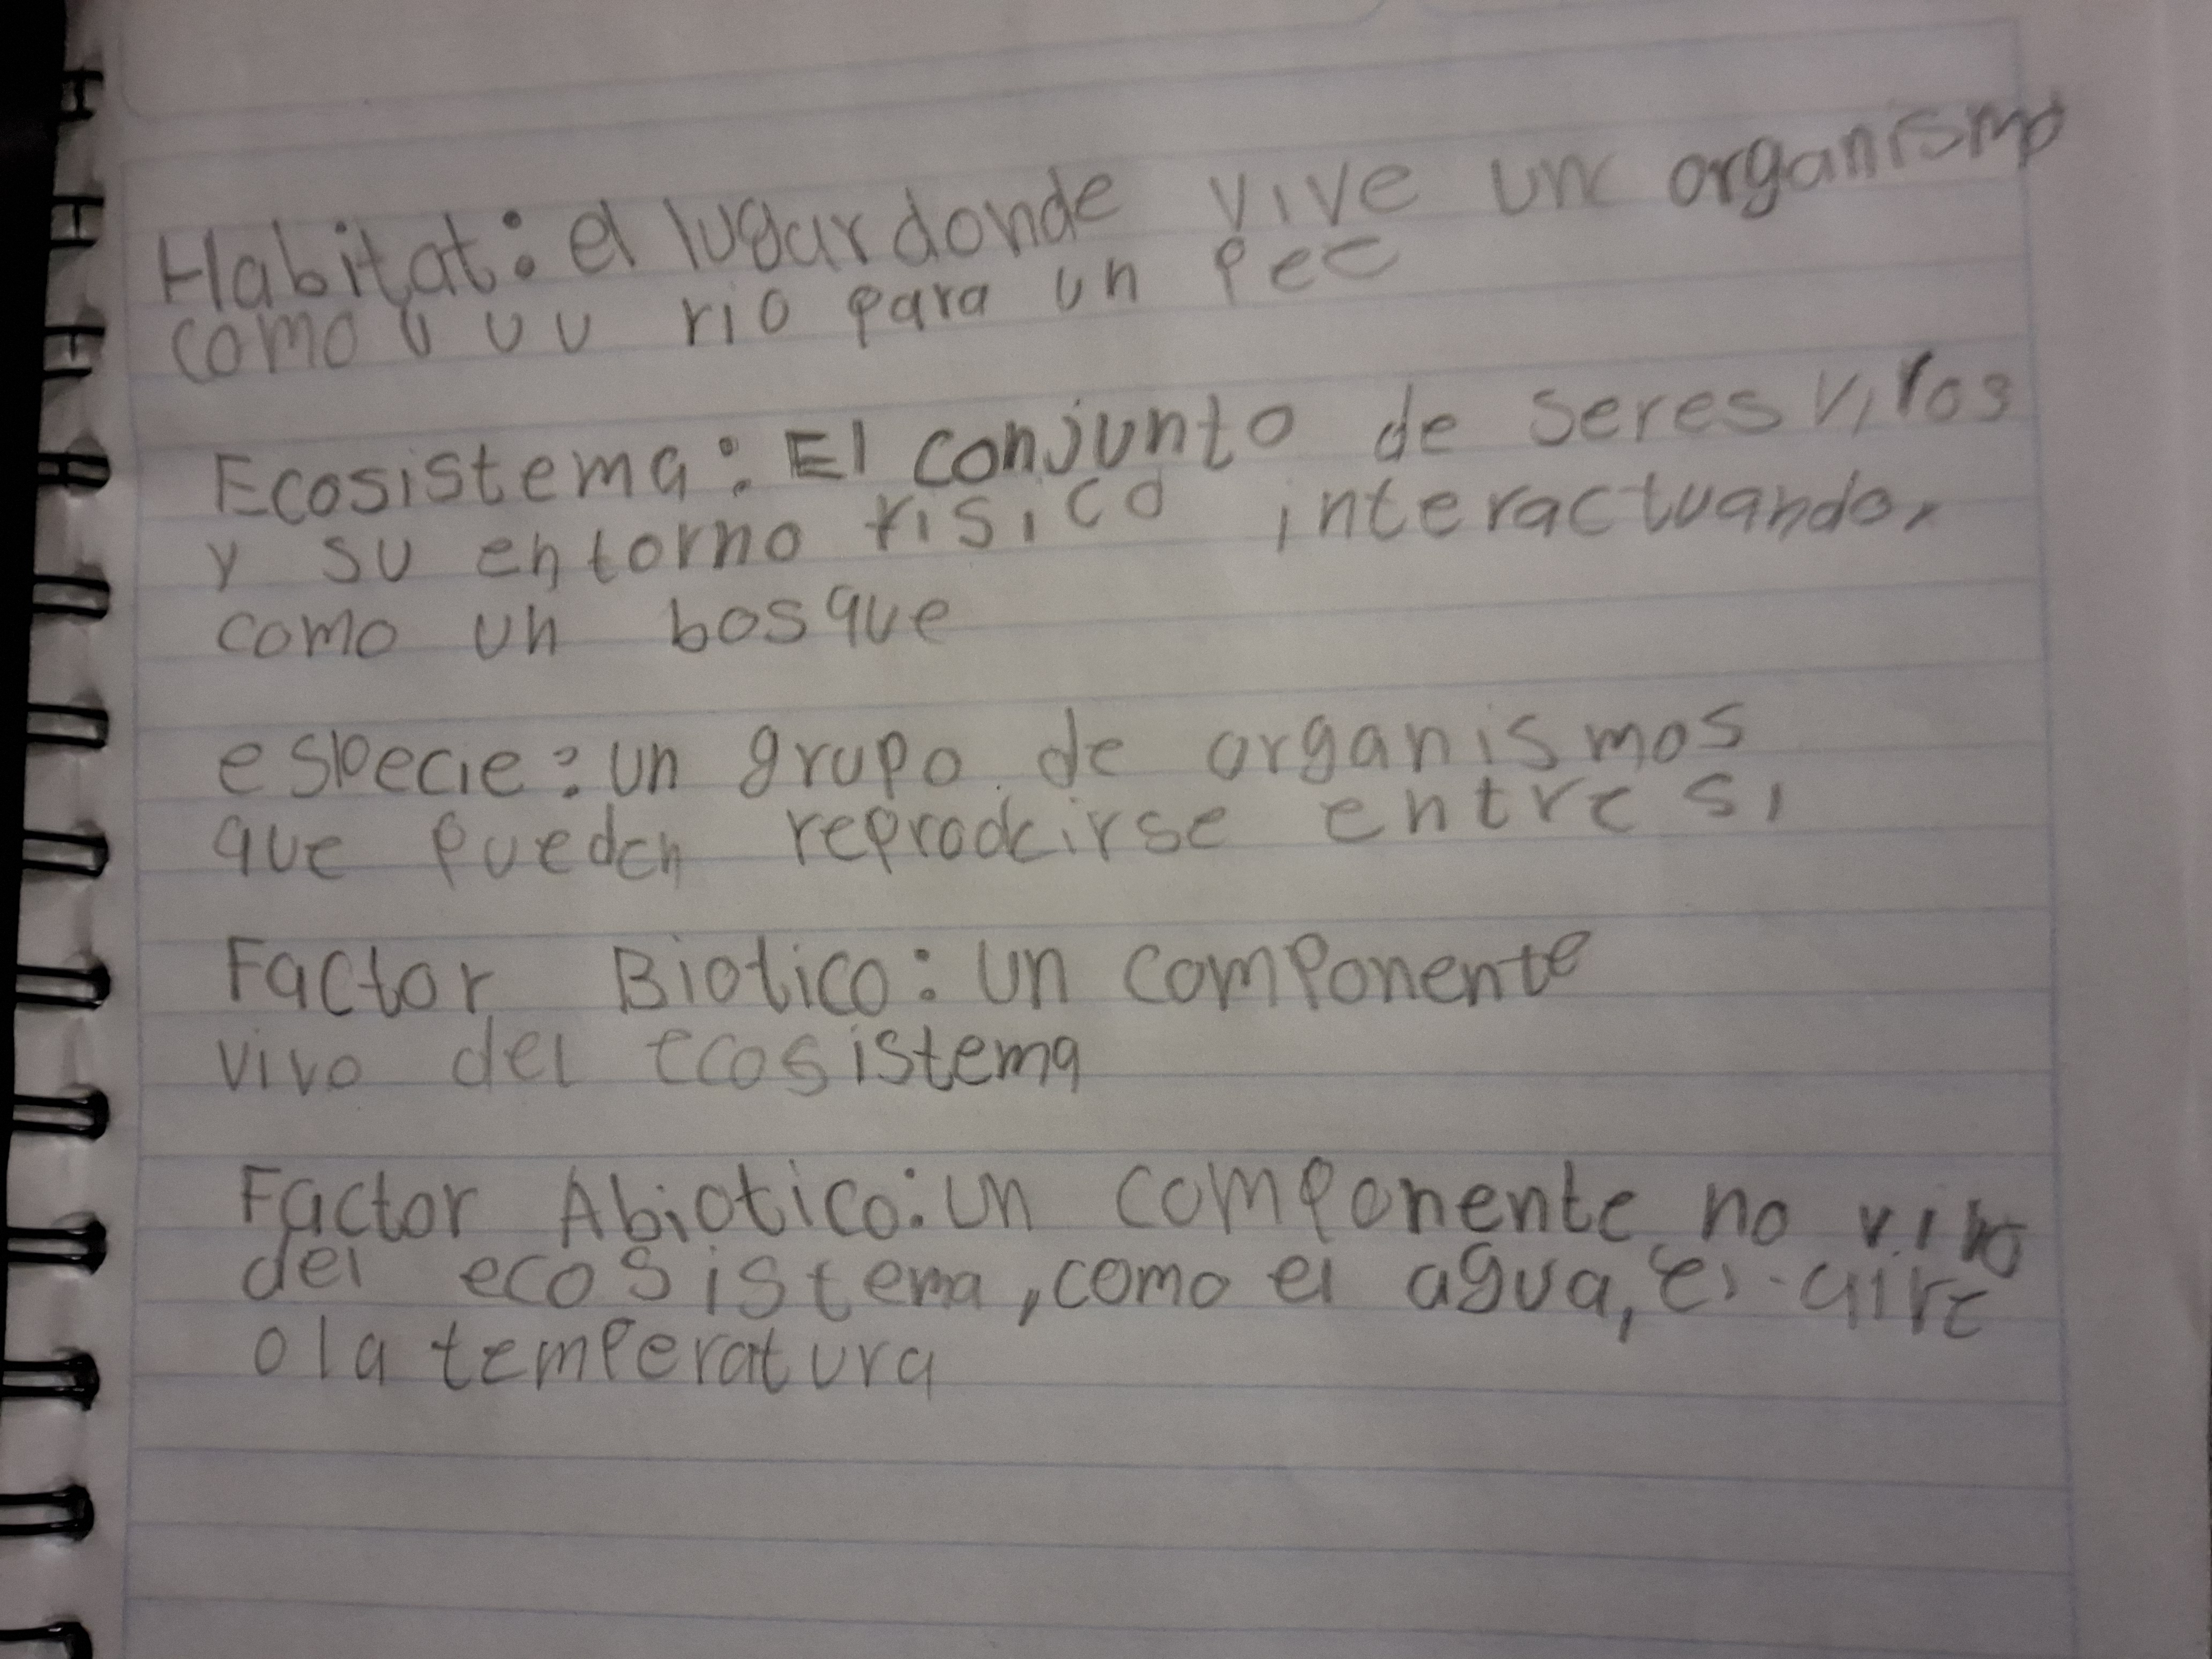 Habitat: el lugar donde vive un organismo
como u u u rio para un pec
Ecosistema: El conjunto de seres vivos
y su entorno fisico interactuando,
como un bosque
especie: un grupo de organismos
que pueden reprodcirse entre si
Factor Biotico: un componente
vivo del ecosistema
Factor Abiotico: un componente no vivo
del ecosistema, como el agua, el aire
o la temperatura